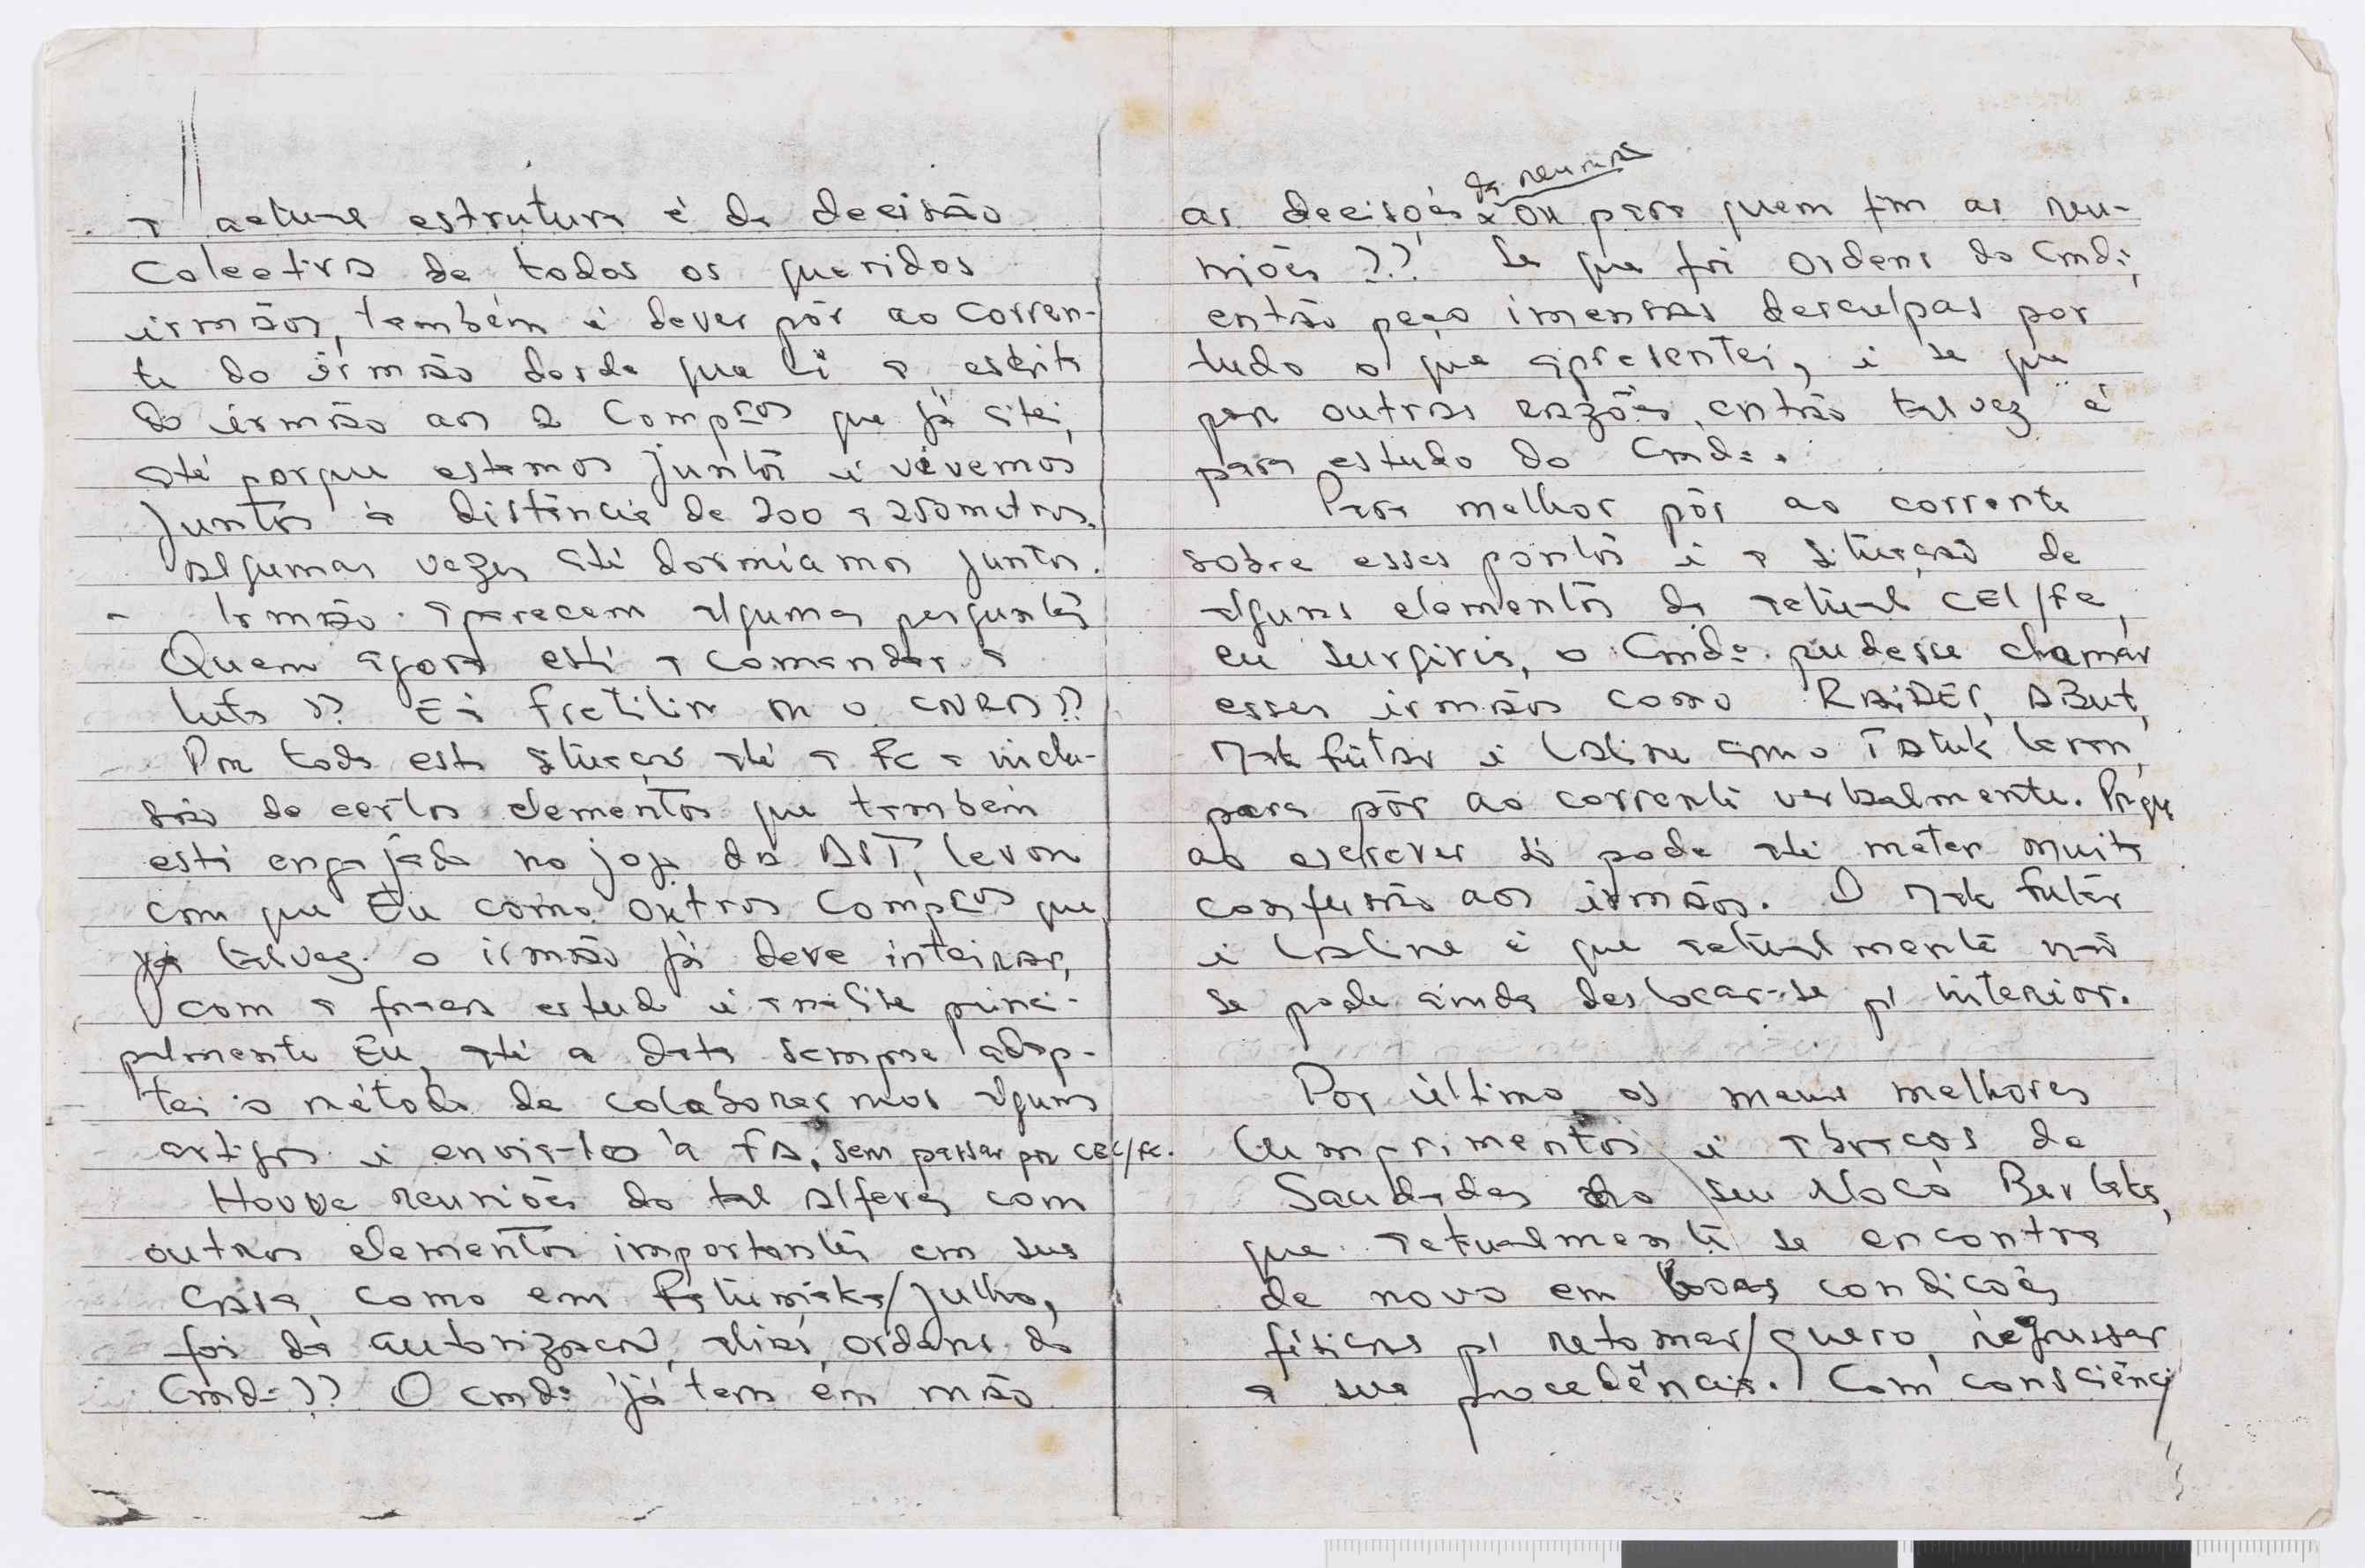 a actual estrutura é da decisão
Colectiva de todos os queridos
irmãos, também é dever pôr ao corren-
te do irmão desde que li a escrita
do irmão aos 2 Compros que já citei,
até porque estamos juntos e vivemos
juntos à distância de 200 a 250 metros.
Algumas vezes até dormíamos juntos.
- Irmão aparecem algumas perguntas
Quem agora está a comandar a
luta ?? É a fretilin ou o CNRM ??
Por toda esta situação até a FC a inclu-
são de certos elementos que também
está engajado no jogo da AST, levou
com que Eu como outros Compros que,
já talvez o irmão já deve inteirar,
com a fraca estudo e análise princi-
palmente Eu, até a data sempre adop-
tei o método de colaborarmos alguns
artigos e enviá-los à FA, sem passar por CEL/FC.
Houve reuniões do tal Alferes com
outros elementos importantes em sua
Casa, como em /Julho,
foi da autorização, aliás, ordens do
Cmdt ?? O Cmdt já tem em mão
da reunião
as decisões ou para quem fim as reu-
niões ??. Se que foi ordens do Cmdt,
então peço imensas desculpas por
tudo o que apresentei, e se que
por outras razões, então talvez é
para estudo do Cmdt.
Para melhor pôr ao corrente
sobre esses pontos e a situação de
alguns elementos da actual CEL/FC,
eu surgiria, o Cmdt. pudesse chamar
esses irmãos como RAIDER, ABUT,
Mate Futar e Laline como Tatuk Leron,
para pôr ao corrente verbalmente. Porque
ao escrever só pode até meter muita
confusão aos irmãos. O Mate Futar
e Laline é que actualmente não
se pode ainda deslocar-se p/ interior.
Por último os meus melhores
Cumprimentos e abraços de
Saudades do seu Mocó Ber Laka,
que actualmente se encontra
de novo em boas condições
físicas p/ retomar/quero, regressar
a sua procedência. Com consciência